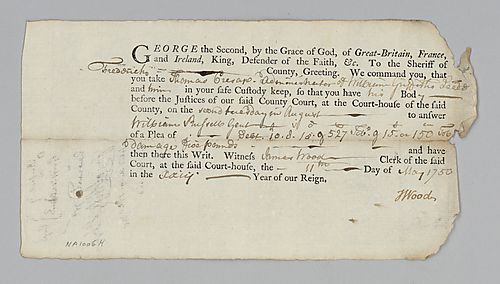 GEORGE the Second, by the Grace of God, of Great-Britain, France,
and Ireland, King, Defender of the Faith, &c. To the Sheriff of
Frederick County, Greeting. We command you, that
you take Thomas Cresap Administrator of William Griffith Decd
and him in your safe Custody keep, so that you have his Bod
before the Justices of our said County Court, at the Court-house of the said
County, on the second tuesday in August to answer
William Russell Gent
of a Plea of Debt 10.8.
Damage five pounds and have
then there this Writ. Witness James Wood Clerk of the said
Court, at the said Court-house, the 11th Day of May 1750
in the Year of our Reign.
JWood
NA1006H